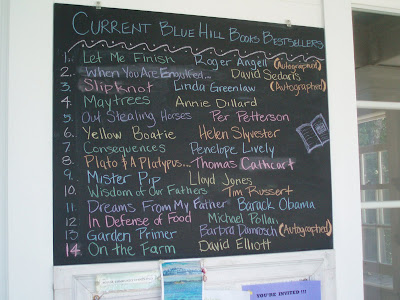 Current Blue Hill Books Bestsellers
1. Let Me Finish Roger Angell (Autographed)
2. When You Are Engulfed... David Sedaris
3. Slipknot Linda Greenlaw (Autographed)
4. Maytrees Annie Dillard
5. Out Stealing Horses Per Petterson
6. Yellow Boatie Helen Slyvester
7. Consequences Penelope Lively
8. Plato & A Platypus... Thomas Cathcart
9. Mister Pip Lloyd Jones
10. Wisdom of Our Fathers Tim Russert
11. Dreams From My Father Barack Obama
12. In Defense of Food Michael Pollan
13. Garden Primer Barbra Damrosch (Autographed)
14. On the Farm David Elliott
YOU'RE INVITED !!!